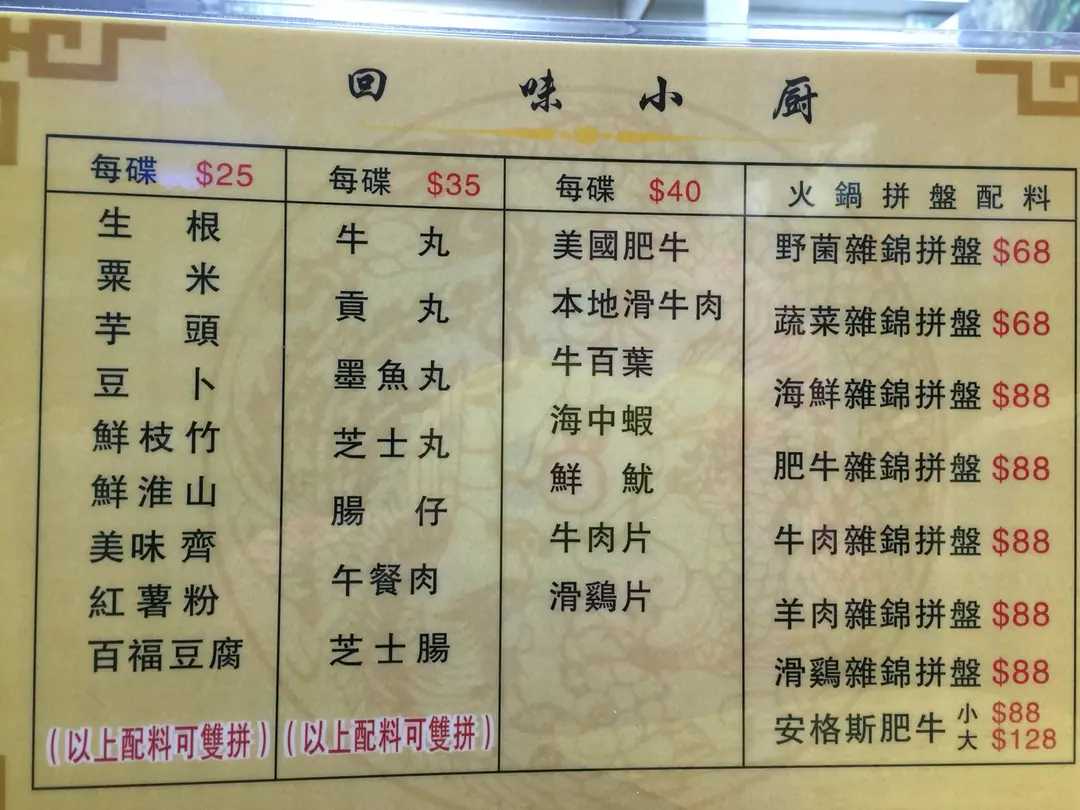 回味小厨
每碟 $25
生根
粟米
芋頭
豆卜
鮮枝竹
鮮淮山
美味齊
紅薯粉
百福豆腐
(以上配料可雙拼)
每碟 $35
牛丸
貢丸
墨魚丸
芝士丸
腸仔
午餐肉
芝士腸
(以上配料可雙拼)
每碟 $40
美國肥牛
本地滑牛肉
牛百葉
海中蝦
鮮魷
牛肉片
滑鷄片
火鍋拼盤配料
野菌雜錦拼盤 $68
蔬菜雜錦拼盤 $68
海鮮雜錦拼盤 $88
肥牛雜錦拼盤 $88
牛肉雜錦拼盤 $88
羊肉雜錦拼盤 $88
滑鷄雜錦拼盤 $88
安格斯肥牛 小 $88
大 $128